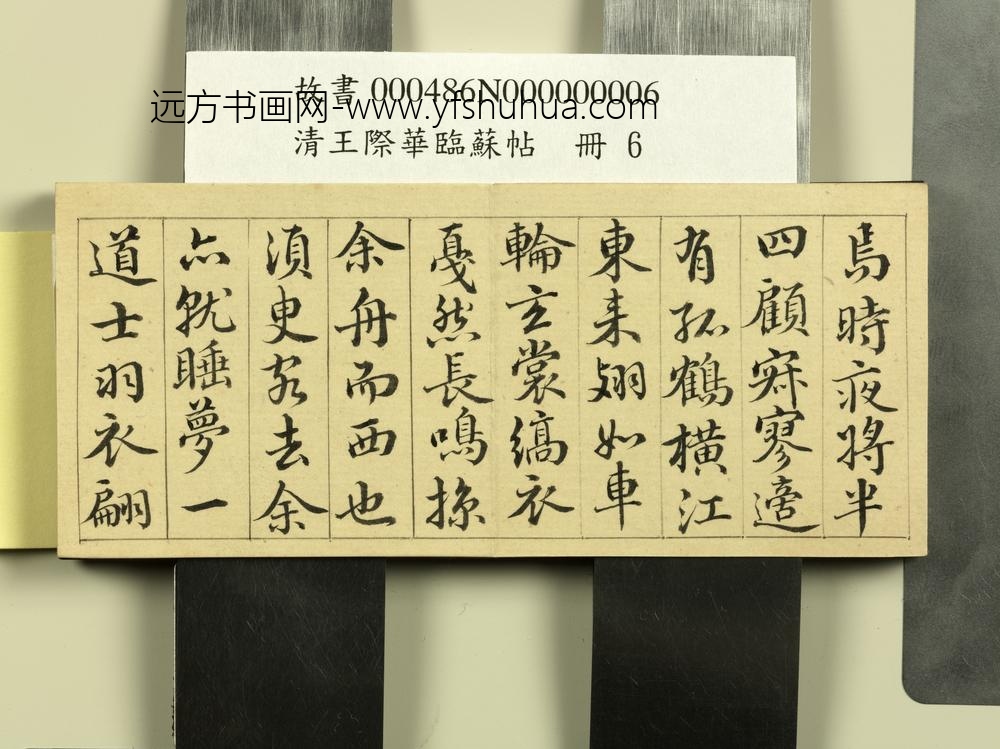 故書 000486N000000006
远方书画网-www.yfshuhua.com
清王際華臨蘇帖 冊 6
焉時夜將半
四顧寂寥適
有孤鶴橫江
東来翅如車
輪玄裳縞衣
戛然長鳴掠
余舟而西也
須臾客去余
亦就睡夢一
道士羽衣翩